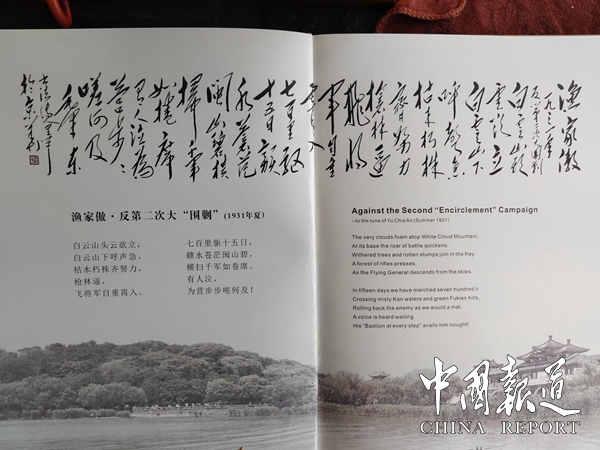 渔家傲
一九三一年
白云山头
云欲立
白云山下
呼声急
枯木朽株
齐努力
枪林逼
飞将
军自重
霄入
七百里驱
十五日
赣
水苍茫
闽山碧横
扫千军
如卷席
有人泣为
营步步
嗟何及
渔家傲·反第二次大“围剿”(1931年夏)
白云山头云欲立，
白云山下呼声急，
枯木朽株齐努力。
枪林逼，
飞将军自重霄入。
七百里驱十五日，
赣水苍茫闽山碧，
横扫千军如卷席。
有人泣，
为营步步嗟何及！
Against the Second "Encirclement" Campaign
--to the tune of Yu Chia Ao (Summer 1931)
The very clouds foam atop White Cloud Mountain,
At its base the roar of battle quickens.
Withered trees and rotten stumps join in the fray.
A forest of rifles presses,
As the Flying General descends from the skies.
In fifteen days we have marched seven hundred li
Crossing misty Kan waters and green Fukien hills,
Rolling back the enemy as we would a mat.
A voice is heard wailing
His "Bastion at every step" avails him nought!
中国报道
CHINA REPORT